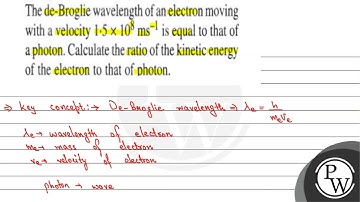 The de-Broglie wavelength of an electron moving
with a velocity 1·5 × 10⁸ ms⁻¹ is equal to that of
a photon. Calculate the ratio of the kinetic energy
of the electron to that of photon.
⇒ Key concept:→ De-Broglie wavelength ⇒ λe = h / meve
λe → wavelength of electron
me → mass of electron
ve → velocity of electron
photon → wave
PW